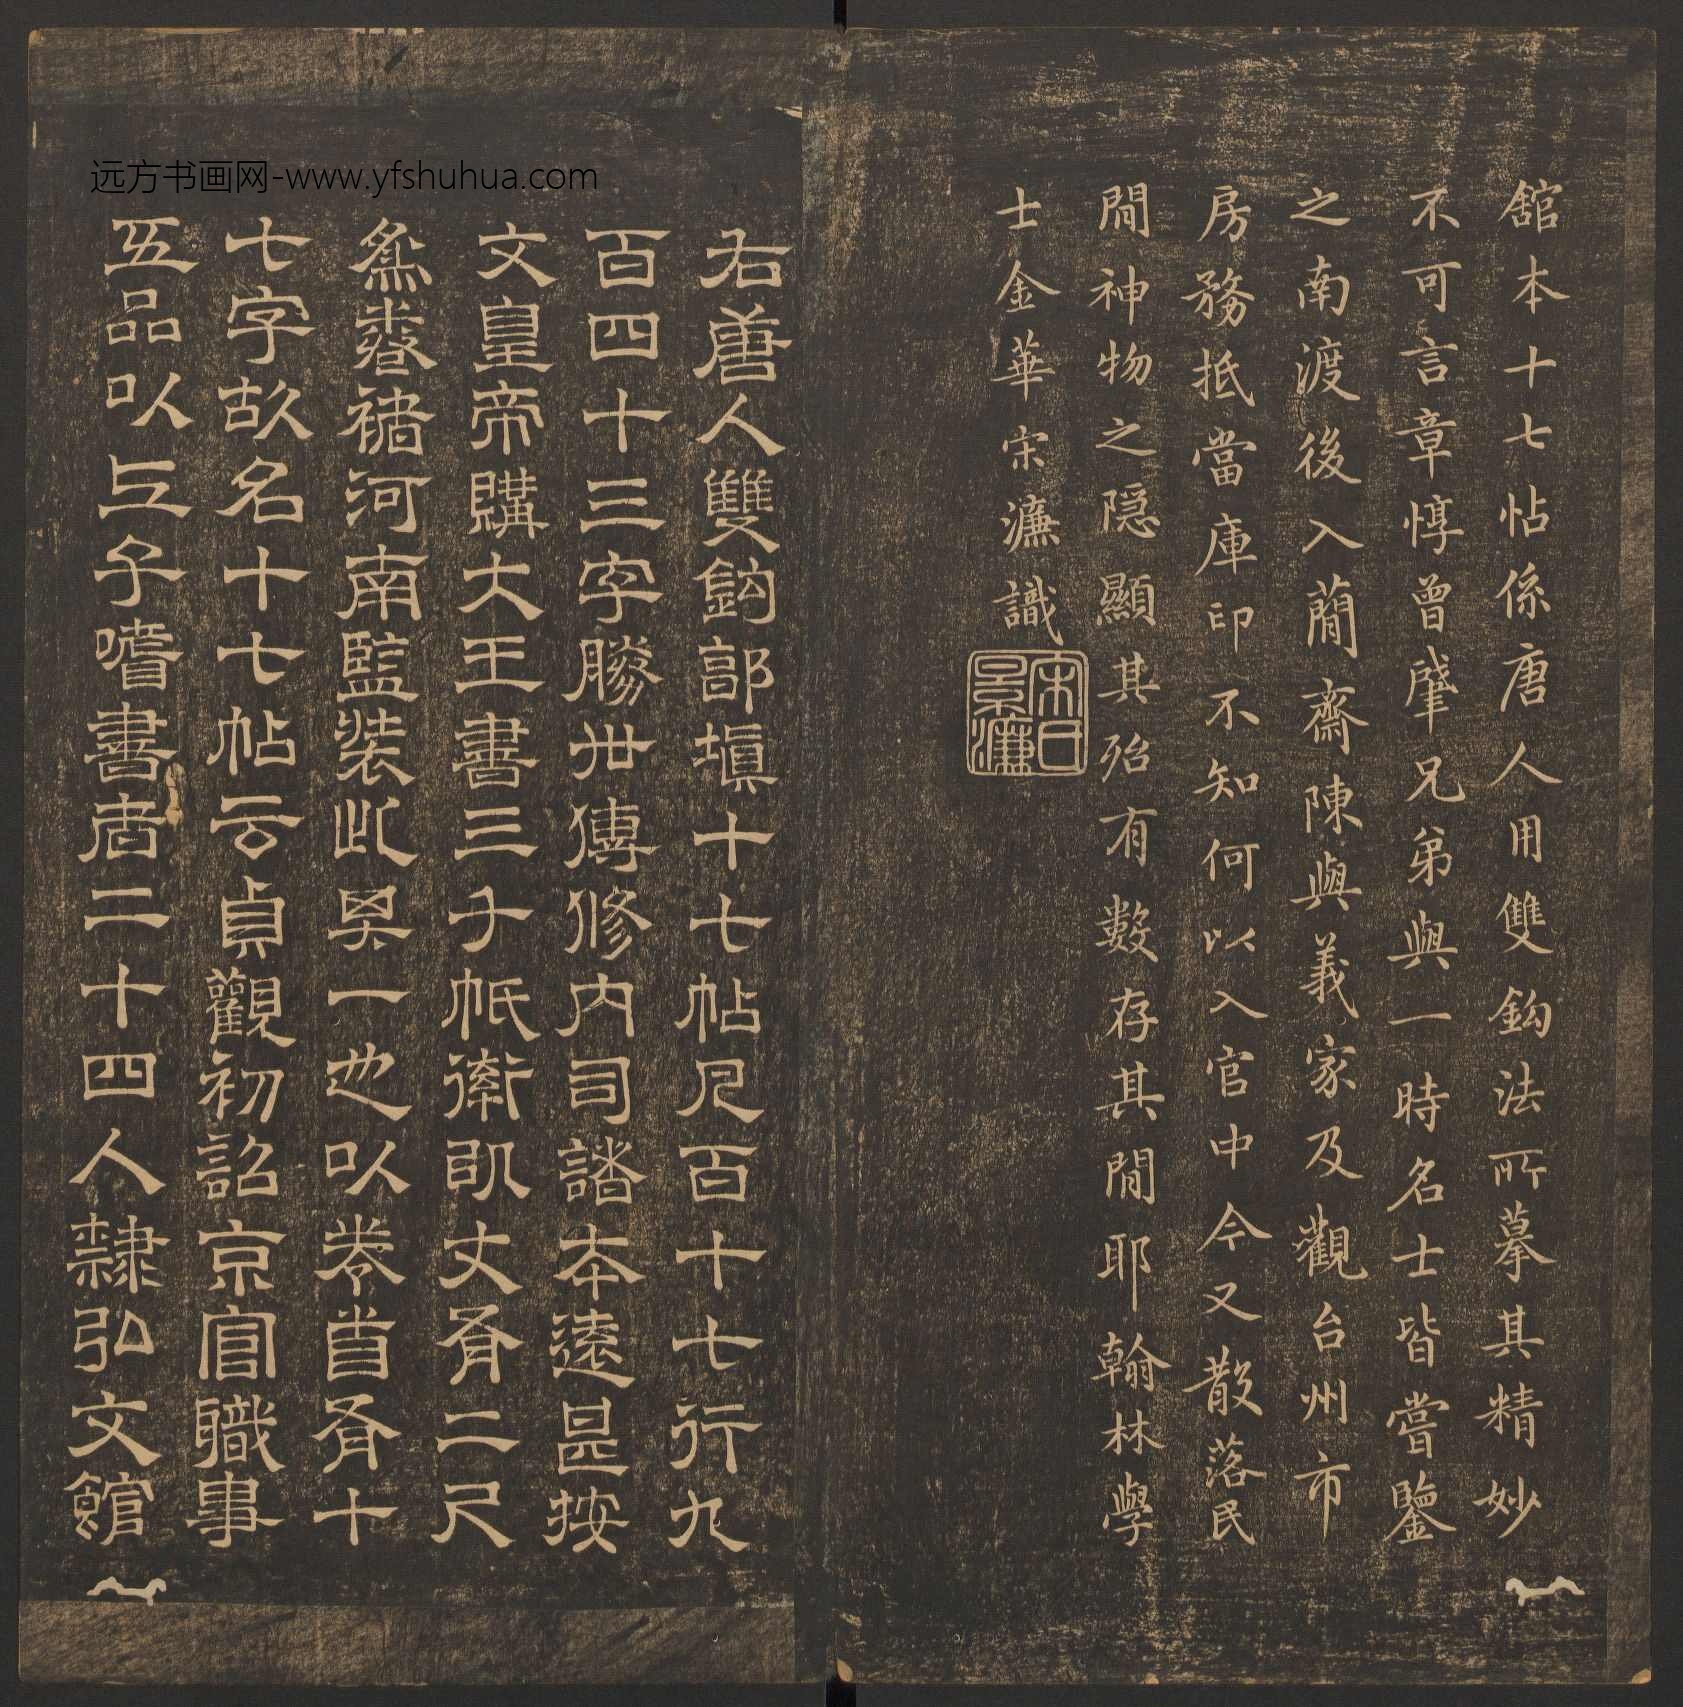 館本十七帖係唐人用雙鈎法所摹其精妙
不可言章惇曾肇兄弟與一時名士皆嘗鑒
之南渡後入蕳齋陳與義家及觀台州市
房務抵當庫印不知何以入官中今又散落民
間神物之隠顯其殆有數存其間耶翰林學
士金華宋濂識
宋氏景濂
右唐人雙鈎郭塡十七帖凡百十七行九
百四十三字勝世傳修內司諸本遠甚按
文皇帝購大王書三千帋率以丈有二尺
為卷褚河南監裝此其一也以卷首有十
七字故名十七帖云貞觀初詔京官職事
五品以上子嗜書者二十四人隸弘文館
远方书画网-www.yfshuhua.com